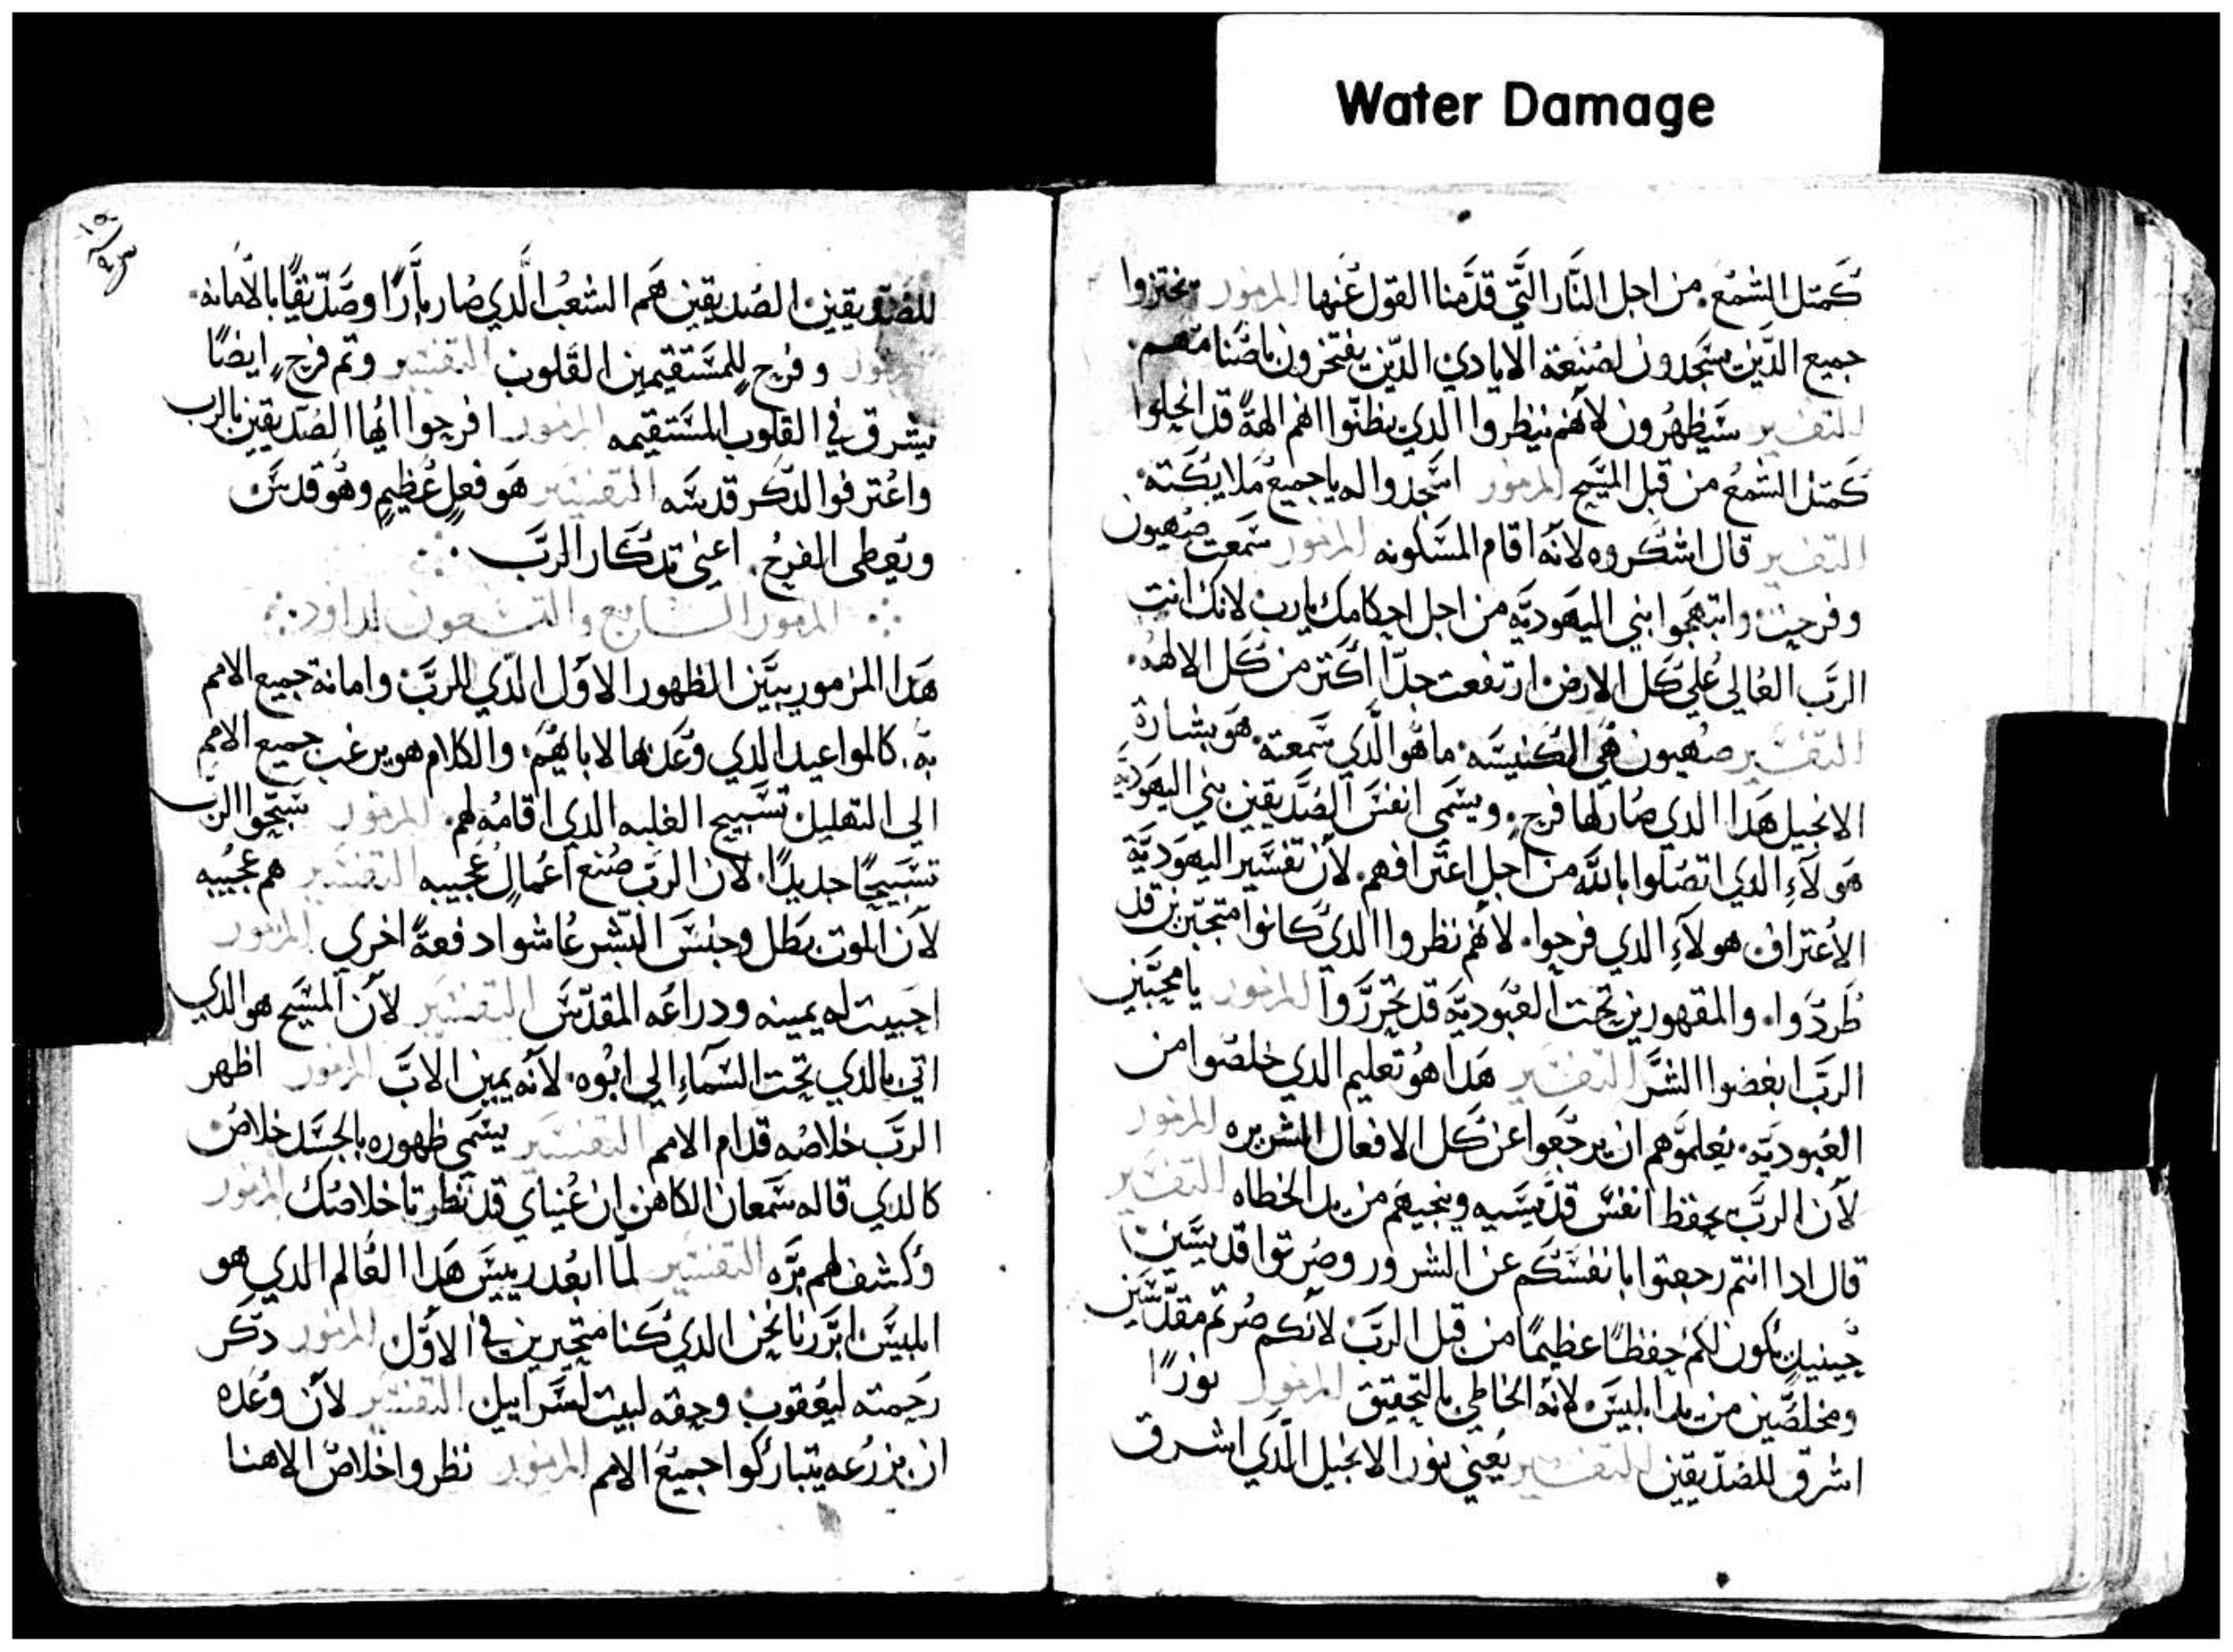 Water Damage
كمتل الشمع. من اجل النار التي قدمنا القول عنها المزمور يختزوا
جميع الدين يسجدون لصنعة الايادي الدين يفتخرون باصنامهم.
التفسير سيظهرون لانهم ينظروا الدي يظنوا انهم الهة قد انحلوا
كمتل الشمع من قبل المسيح المزمور اسجدوا له يا جميع ملايكته.
التفسير قال اشكروه لانه اقام المسكونه المزمور سمعت صهيون
وفرحت وابتهجوا بني اليهودية من اجل احكامك يارب لانك انت
الرب العالي علي كل الارض ارتفعت جدا اكتر من كل الالهه.
التفسير صهيون هي الكنيسه. ما هو الدي سمعته. هو بشارة
الانجيل هدا الدي صار لها فرح. ويسمي انفس الصديقين بني اليهودية
هولاء الدي اتصلوا بالله من اجل اعترافهم. لان تفسير اليهودية
الاعتراف هولاء الدي فرحوا. لانهم نظروا الدي كانوا متجبرين قد
طردوا. والمقهورين تحت العبودية قد تحرروا المزمور يا محبين
الرب ابغضوا الشر التفسير هدا هو تعليم الدي خلصوا من
العبودية. يعلموهم ان يرجعوا عن كل الافعال الشريره المزمور
لان الرب يحفظ انفس قديسيه وينجيهم من يد الخطاه التفسير
قال ادا انتم رجعتوا بانفسكم عن الشرور وصرتوا قديسين
حينيد يكون لكم حفظا عظيما من قبل الرب لانكم صرتم مقدسين
ومخلصين من يد ابليس لانه الخاطي بالتحقيق المزمور نورا
اشرق للصديقين التفسير يعني نور الانجيل الدي اشرق
للصديقين. الصديقين هم الشعب الدي صار بارا وصديقا بالامانه.
المزمور وفرح للمستقيمين القلوب التفسير وتم فرح ايضا
يشرق في القلوب المستقيمه المزمور افرحوا ايها الصديقين بالرب
واعترفوا لدكر قدسه التفسير هو فعل عظيم وهو قدس
ويعطي الفرح. اعني تدكار الرب
المزمور السابع والتسعون لداود
هدا المزمور يبين الظهور الاول الدي للرب وامانة جميع الامم
به. كالمواعيد الدي وعدها لابايهم. والكلام هو يرغب جميع الامم
الي التهليل تسبيح الغلبه الدي اقامه لهم. المزمور سبحوا الرب
تسبيحا جديدا. لان الرب صنع اعمال عجيبه التفسير هم عجيبه
لان الموت بطل وجنس البشر عاشوا دفعة اخري المزمور
احييت له يمينه ودراعه المقدس التفسير لان المسيح هو الدي
اتي بالدي تحت السماء الي ابوه. لانه يمين الاب المزمور اظهر
الرب خلاصه قدام الامم التفسير يسمي ظهوره بالجسد خلاص
كالدي قاله سمعان الكاهن ان عيناي قد نظرتا خلاصك المزمور
وكشف لهم بره التفسير لما ابعد رييس هدا العالم الدي هو
ابليس ابررنا نحن الدي كنا متحيرين في الاول المزمور دكر
رحمته ليعقوب وحقه لبيت اسراييل التفسير لان وعده
ان بزرعه يتباركوا جميع الامم المزمور نظروا خلاص الاهنا